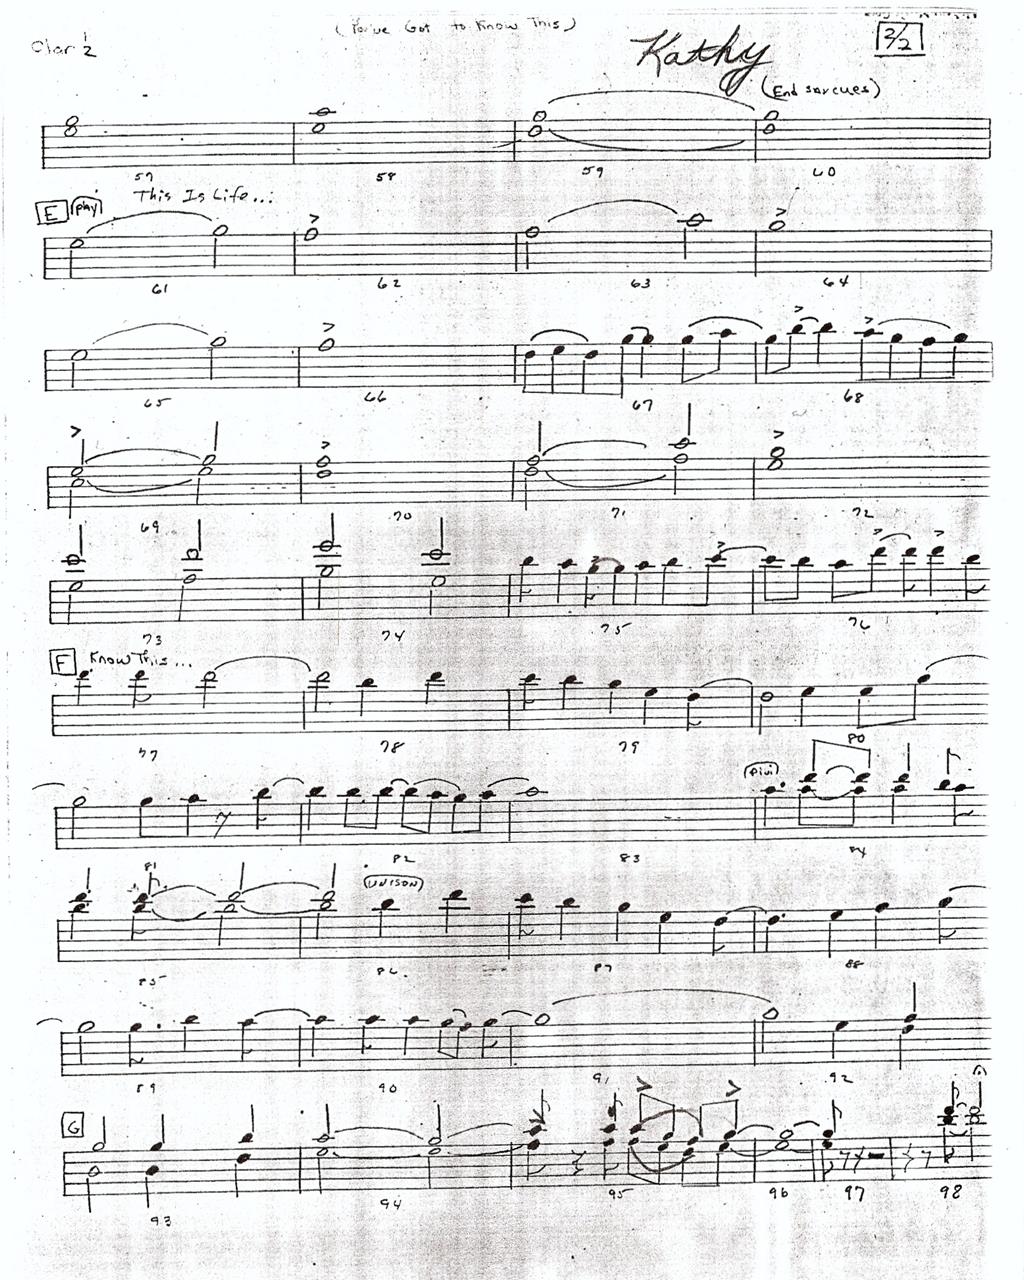 (You've Got to Know This)
Clar 1/2
Kathy
2/2
(End sax cues)
57 58 59 60
E play This Is Life...
61 62 63 64
65 66 67 68
69 70 71 72
73 74 75 76
F Know This...
77 78 79 80
divi
81 82 83 84
(UNISON)
85 86 87 88
89 90 91 92
G
93 94 95 96 97 98